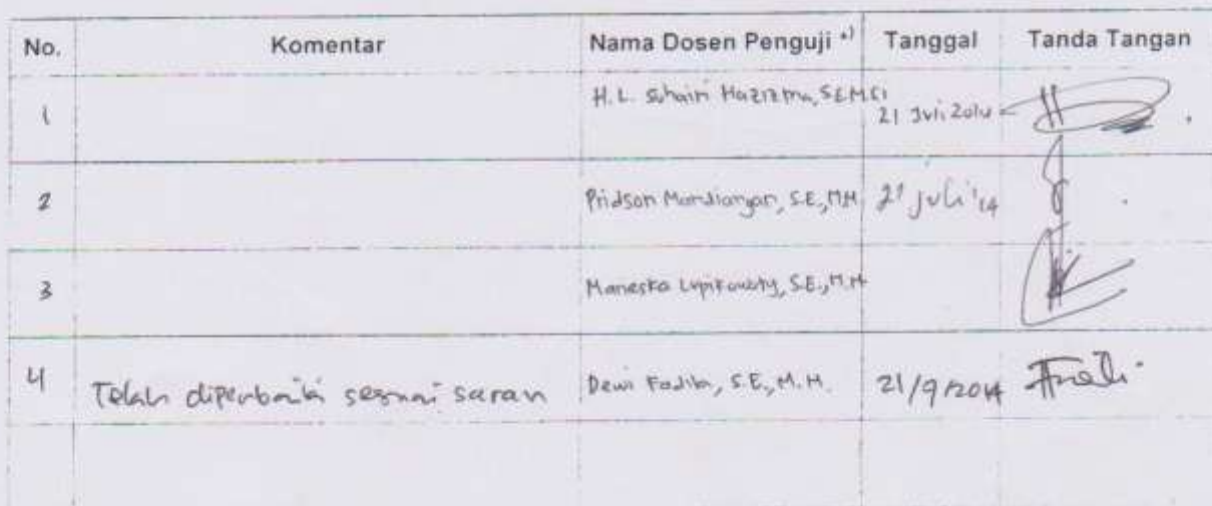 No. Komentar Nama Dosen Penguji *) Tanggal Tanda Tangan
1 H.L. Suhairi Hazizma, S.E.M.Si 21 Juli 2014
2 Pridson Mandiangan, S.E., M.M 21 Juli '14
3 Maneska S.E., M.M
4 Telah diperbaiki sesuai saran Dewi Fadila, S.E., M.M. 21/9/2014